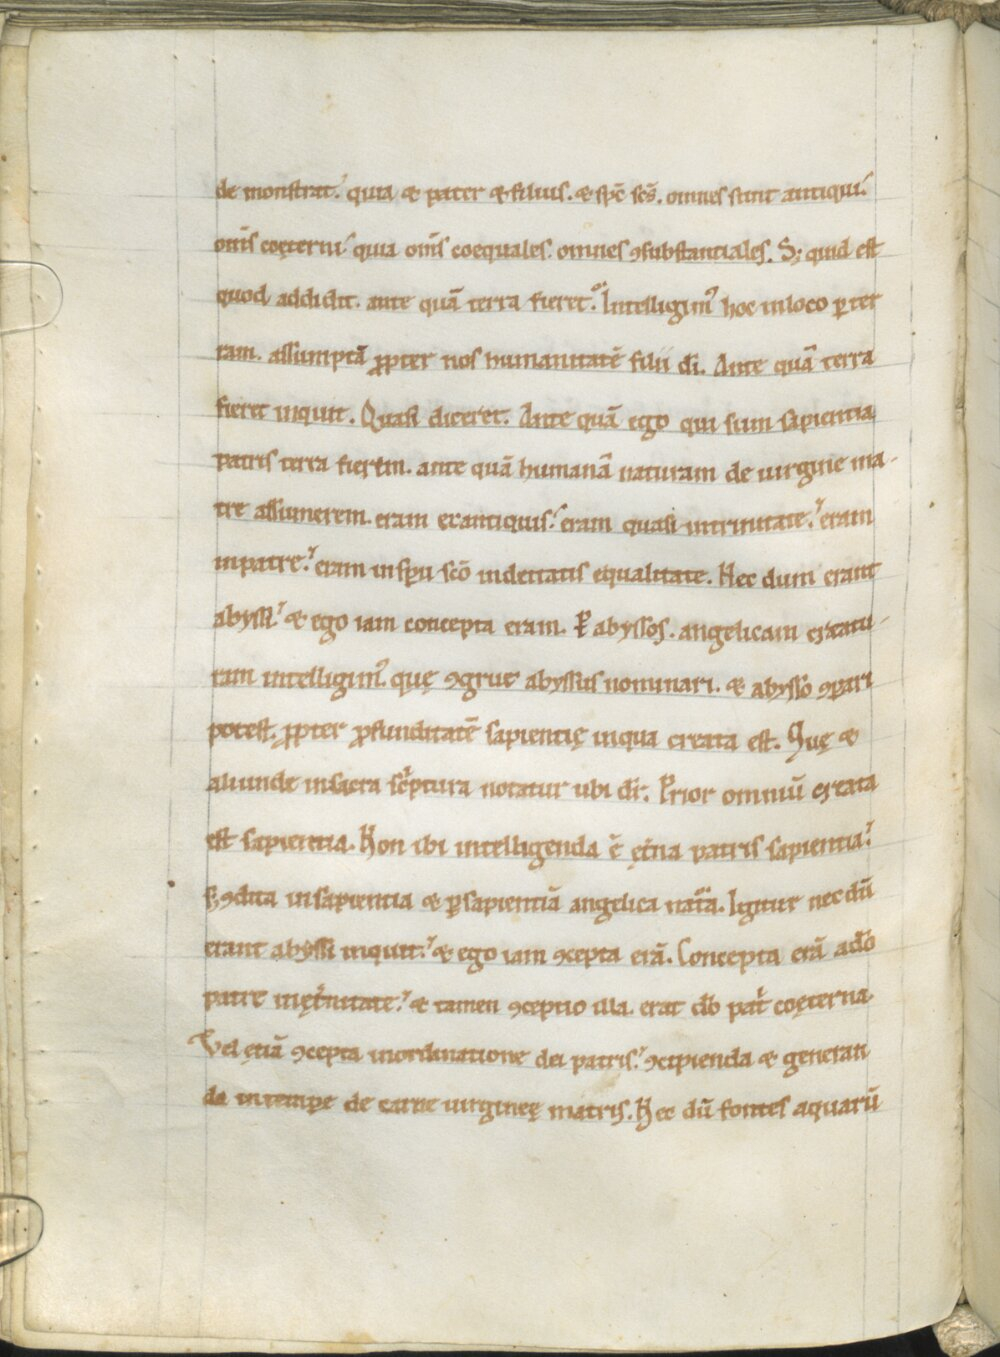 de monstrat. quia & pater & filius. & sp̄c sc̄s. omnes sunt antiqui.
om̄s coęterni. quia om̄s coequales. omnes ꝯsubstantiales. S; quid est
quod addidit. ante quā terra fieret. Intelligimꝰ hoc inloco ꝑ ter
ram. assumptā ꝓpter nos humanitatē filii dī. Ante quā terra
fieret inquit. Quasi diceret. Ante quā ego qui sum sapientia
patris terra fierem. ante quā humanā naturam de uirgine ma-
tre assumerem. eram exantiquis. eram quasi intrinitate. eram
inpatre. eram insp̄u sc̄o indeitatis equalitate. Nec dum erant
abyssi. & ego iam concepta eram. Ꝑ abyssos. angelicam creatu-
ram intelligimꝰ. quę ꝯgrue abyssus nominari. & abysso ꝯpari
potest. ꝓpter ꝓfunditatē sapientię inqua creata est. Quę &
aliunde insacra sc̄ptura notatur ubi dr̄. Prior omniū creata
est sapientia. Non ibi intelligenda ē ęt̄na patris sapientia.
s; ꝯdita insapientia & ꝑ sapientiā angelica nat̄a. Igitur nec dū
erant abyssi inquit. & ego iam ꝯcepta erā. Concepta erā ad̄o
patre inęt̄nitate. & tamen ꝯceptio illa. erat d̄o pat̄ coęterna.
Vel ętiā ꝯcepta inordinatione dei patris. ꝯcipienda & generan
da intempe de carne uirgineę matris. Nec dū fontes aquarū